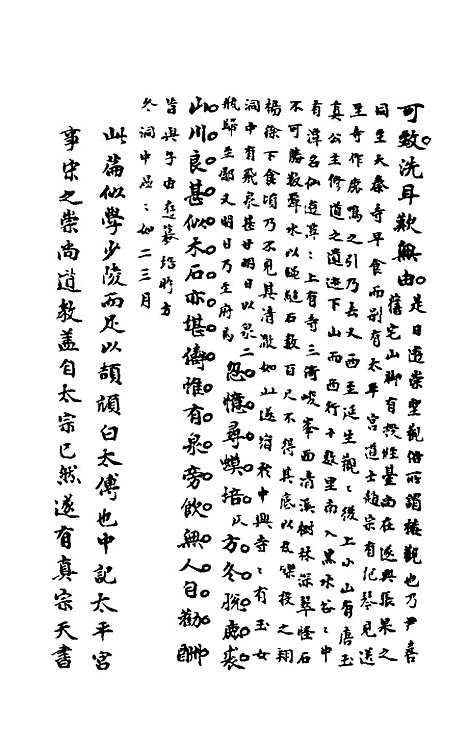 可致洗耳歎無由
是日遊崇聖觀俗所謂樓觀也乃尹喜
舊宅山脚有授經臺尚在遂與張杲之
同至大秦寺早食而別有太平宮道士趙宗有抱琴見送
至寺作鹿鳴之引乃去又西至延生觀〻後上小山有唐玉
真公主修道之遺迹下山而西行十數里南入黑水谷〻中
有潭名仙遊潭〻上有寺三倚峻峯面清溪樹林深翠怪石
不可勝數潭水以繩縋石數百尺不得其底以瓦礫投之翔
揚徐下食頃乃不見其清澈如此遂宿於中興寺〻有玉女
洞中有飛泉甚甘明日以泉二
瓶歸至郿又明日乃至府
忽憶尋蟆培方冬脫鹿裘
山川良甚似水石亦堪儔惟有泉旁飲無人自勸酬
昔與子由遊蟆培時方
冬洞中温〻如二三月
此篇似學少陵而足以頡頏白太傅也中記太平宮
事宋之崇尚道教蓋自太宗已然遂有真宗天書